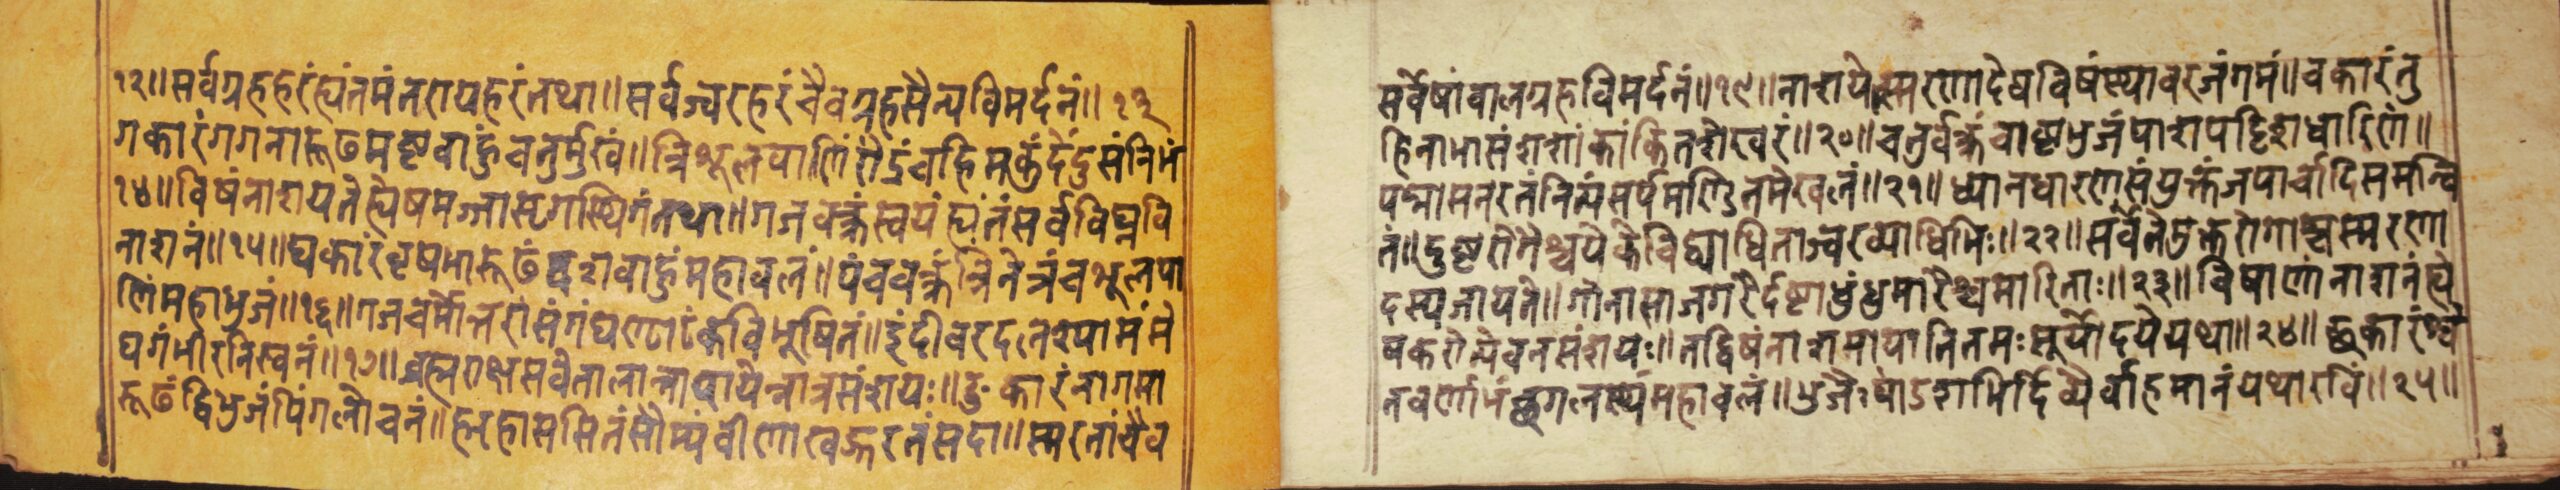 १२॥सर्वग्रहहरंह्यंतमंतरायहरंतथा॥सर्वज्वरहरंचैवग्रहसैन्यविमर्दनं॥१३
गकारंगगनारूढमष्टबाहुंचतुर्मुखं॥त्रिशूलपाणिंरौद्रंचहिमकुंदेंदुसंनिभं
१४॥विषंनाशयतेह्येषमग्नासृगस्थिगंतथा॥गजवक्त्रंस्वयंह्यंतंसर्वविघ्नवि
नाशनं॥१५॥घकारंवृषभारूढंद्वादशबाहुंमहाबलं॥पंचवक्त्रंत्रिनेत्रंचशूलपा
णिंमहाभुजं॥१६॥गजचर्मोत्तरासंगंघण्टाटंकविभूषितं॥इंदीवरदलश्यामंमे
घगंभीरनिस्वनं॥१७॥ब्रह्मराक्षसवेतालान्नाशयेन्नात्रसंशयः॥ङकारंनागमा
रूढंद्विभुजंपिंगलोचनं॥हारहाससितंसौम्यंवीणास्वक्तरतंसदा॥स्मरतांचैव
सर्वेषांबालग्रहविमर्दनं॥१९॥नाशयेत्स्मरणादेषविषंस्थावरजंगमं॥चकारंतु
हिनाभासंशशांकांकितशेखरं॥२०॥चतुर्वक्त्रंचाष्टभुजंपाशपट्टिशधारिणं॥
पद्मासनरतंनित्यंसर्पमण्डितमेखलं॥२१॥ध्यानधारणसंयुक्तंजपार्चादिसमन्वि
तं॥दुष्टरोगैश्चयेकेविद्याधिताज्वरव्याधिभिः॥२२॥सर्वेतेमुक्तरोगाश्चस्मरणा
दस्यजायते॥गोनासाजगरैर्दष्टाध्रंध्रमारैश्चमारिताः॥२३॥विषाणांनाशनंह्ये
षकरोत्येवनसंशयः॥तद्विषंनाशमायातितमःसूर्योदयेयथा॥२४॥छकारंश्वे
तवर्णाभंछगलस्थंमहाबलं॥भुजैःषोडशभिर्दिव्यैर्वाहमानंयथारविं॥२५॥